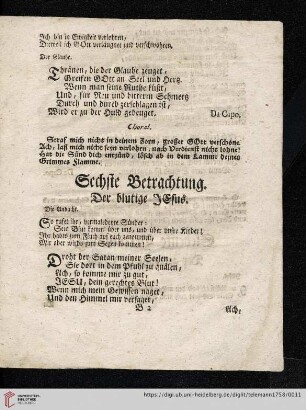 Ich bin in Ewigkeit verlohren,
Dieweil ich GOtt verläugnet und verschwohren.
Der Glaube.
Thränen, die der Glaube zeuget,
Greifen GOtt an Seel und Hertz.
Wenn man seine Ruthe küßt,
Und, für Reu und bitterm Schmertz
Durch und durch zerschlagen ist,
Wird er zu der Huld gebeuget. Da Capo.
Choral.
Straf mich nicht in deinem Zorn, grosser GOtt verschone.
Ach, laß mich nicht seyn verlohren, nach Verdienst nicht lohne!
Hat die Sünd dich entzünd, lösch ab in dem Lamme deines
Grimmes Flamme.
Sechste Betrachtung.
Der blutige JEsus.
Die Andacht.
So rufet ihr, vermaledeyte Sünder:
Sein Blut komm über uns, und über unsre Kinder!
Ihr habts zum Fluch auf euch genommen;
Wir aber wolln zum Segen kommen!
Droht der Satan meiner Seelen,
Sie dort in dem Pfuhl zu quälen,
Ach, so komme mir zu gut,
JESU, dein gerechtes Blut!
Wenn mich mein Gewissen naget,
Und den Himmel mir versaget,
B 2 Ach,
UNIVERSITÄTS-
BIBLIOTHEK
HEIDELBERG
https://digi.ub.uni-heidelberg.de/diglit/telemann1758/0011